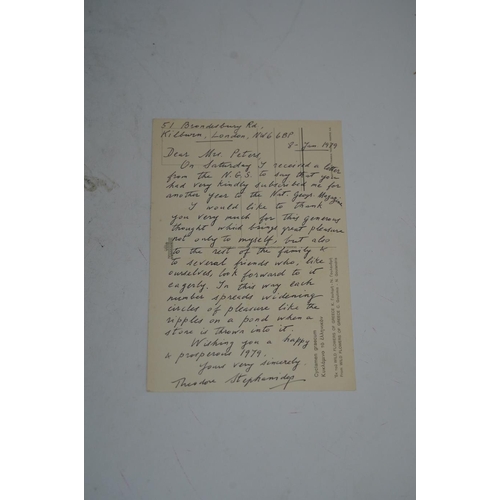 51 Brondesbury Rd.,
Kilburn, London, NW6 6BP
8 - Jan 1979
Dear Mrs. Peters,
On Saturday I received a letter
from the N.G.S. to say that you
had very kindly subscribed me for
another year to the Nat. Geogr. Magazine
I would like to thank
you very much for this generous
thought which brings great pleasure
not only to myself, but also
to the rest of the family &
to several friends who, like
ourselves, look forward to it
eagerly. In this way each
number spreads widening
circles of pleasure like the
ripples on a pond when a
stone is thrown into it.
Wishing you a happy
& prosperous 1979.
Yours very sincerely,
Theodore Stephanides
Cyclamen graecum